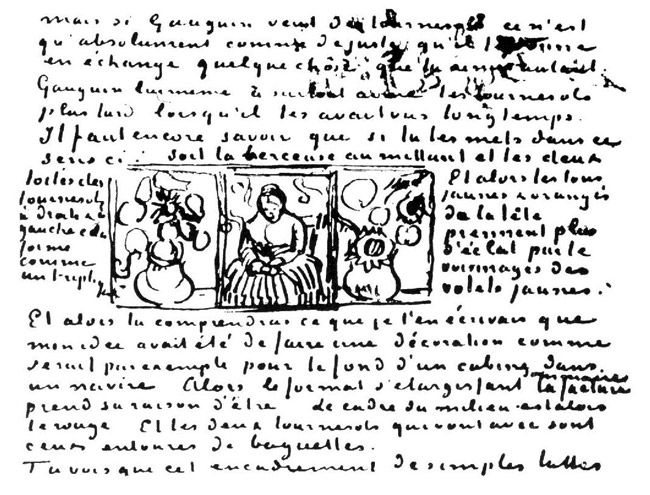 mais si Gauguin veut des tournesols ce n'est
qu'absolument comme de juste qu'il te donne
en échange quelque chôse que tu aimes autant.
Gauguin lui même a surtout aimé les tournesols
plus tard lorsqu'il les avait vus longtemps.
Il faut encore savoir que si tu les mets dans ce
sens ci : soit la berceuse au millieu et les deux
toiles des
tournesols
à droite & à
gauche cela
forme
comme
un triptyque
Et alors les tons
jaunes & orangés
de la tête
prennent plus
d'éclat par le
voisinages des
volets jaunes.
Et alors tu comprendras ce que je t'en écrivais que
mon idée avait été de faire une décoration comme
serait par exemple pour le fond d'un cabine dans
un navire Alors le format s'élargissant la facture sommaire
prend sa raison d'être le cadre du milieu est alors
le rouge Et les deux tournesols qui vont avec sont
ceux entourés de baguettes.
Tu vois que cet encadrement de simples lattes